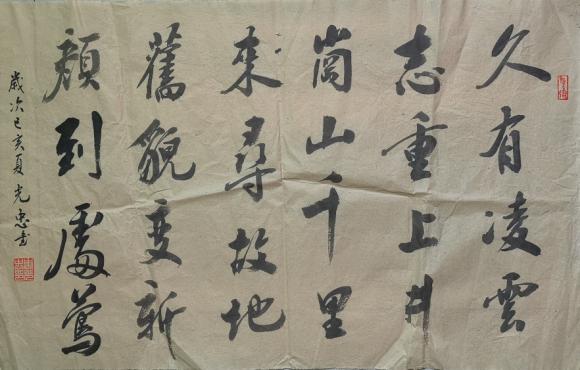 久有凌雲
志重上井
崗山千里
來尋故地
舊貌變新
顏到處鶯
歲次己亥夏光忠書